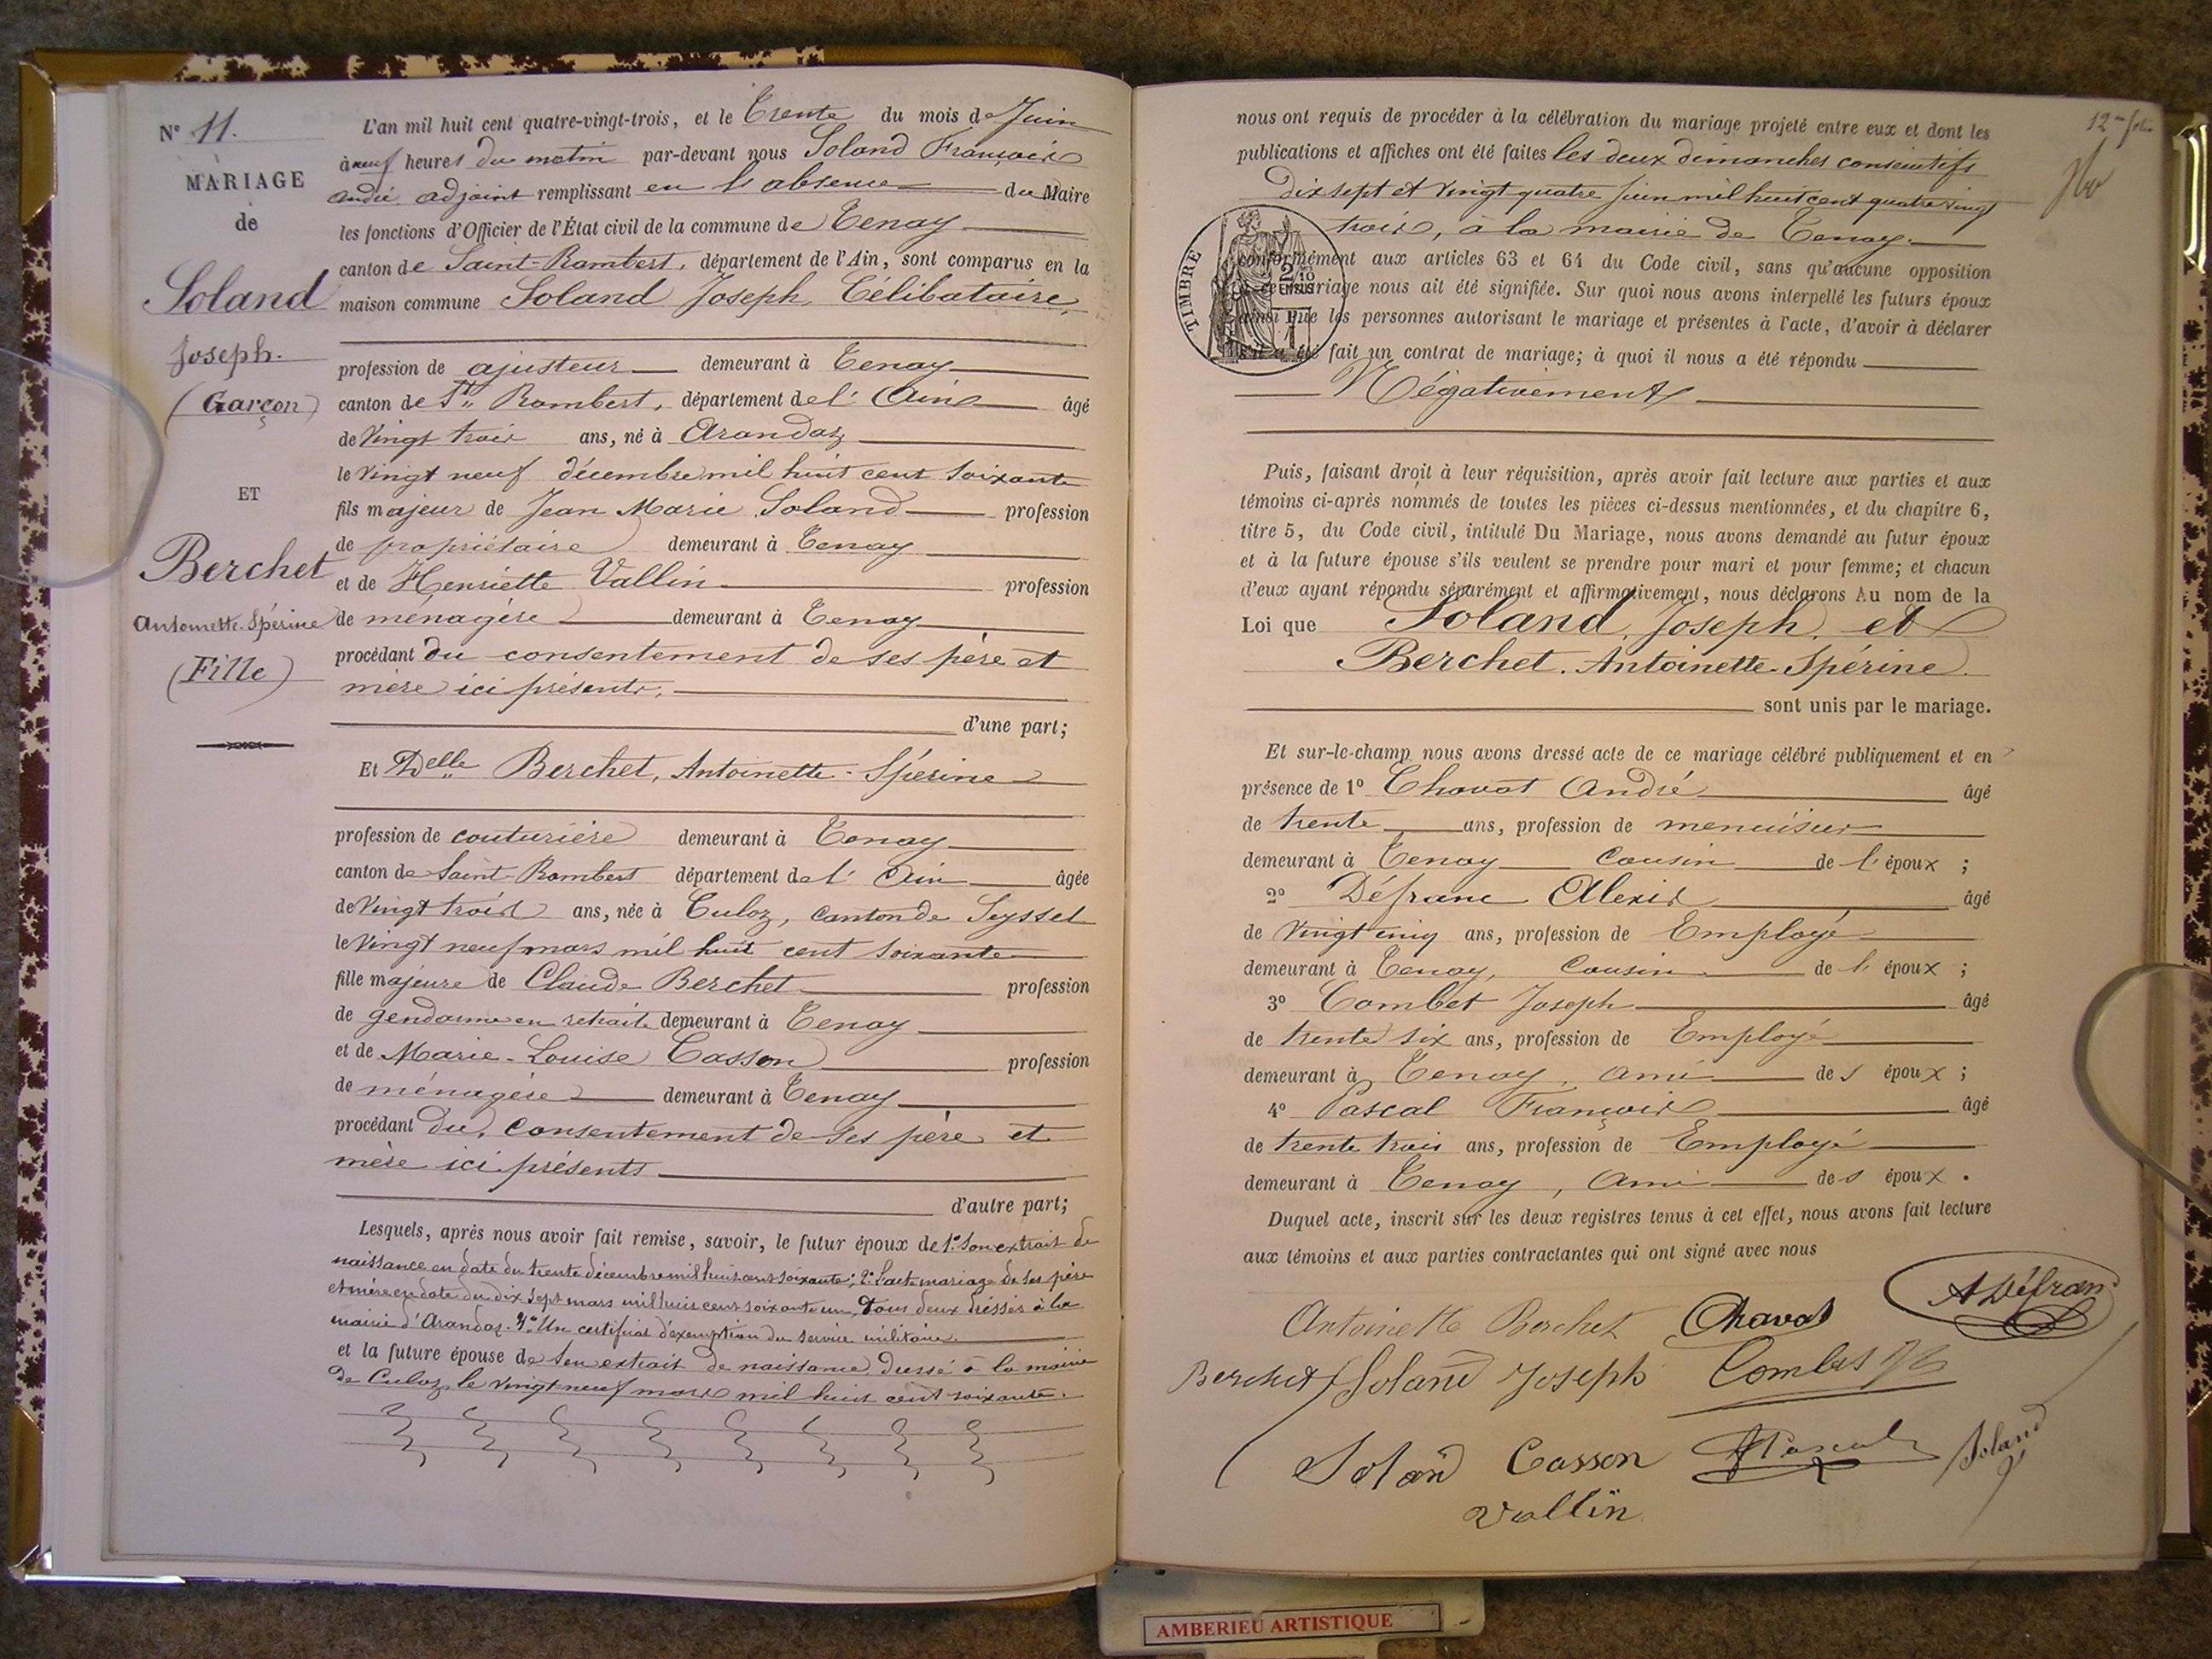 N° 11.
MARIAGE
de
Soland
Joseph.
(Garçon)
ET
Berchet
Antoinette-Spérine
(Fille)
L'an mil huit cent quatre-vingt-trois, et le Trente du mois de Juin
à neuf heures du matin par-devant nous Soland François
André adjoint remplissant en l'absence du Maire
les fonctions d'Officier de l'État civil de la commune de Tenay
canton de Saint-Rambert, département de l'Ain, sont comparus en la
maison commune Soland Joseph, Célibataire,
profession de ajusteur demeurant à Tenay
canton de St Rambert, département de l'Ain âgé
de Vingt trois ans, né à Arandas
le Vingt neuf décembre mil huit cent soixante
fils majeur de Jean Marie Soland profession
de propriétaire demeurant à Tenay
et de Henriette Vallin profession
de ménagère demeurant à Tenay
procédant du consentement de ses père et
mère ici présents,
d'une part;
Et Delle Berchet, Antoinette-Spérine
profession de couturière demeurant à Tenay
canton de Saint-Rambert département de l'Ain âgée
de Vingt trois ans, née à Culoz, canton de Seyssel
le Vingt neuf mars mil huit cent soixante
fille majeure de Claude Berchet profession
de gendarme en retraite demeurant à Tenay
et de Marie-Louise Casson profession
de ménagère demeurant à Tenay
procédant du consentement de ses père et
mère ici présents
d'autre part;
Lesquels, après nous avoir fait remise, savoir, le futur époux de 1° Son extrait de
naissance en date du trente décembre mil huit cent soixante; 2° L'acte mariage de ses père
et mère en date du dix sept mars mil huit cent soixante un, tous deux dressés à la
mairie d'Arandas. 3° Un certificat d'exemption du service militaire
et la future épouse de Son extrait de naissance dressé à la mairie
de Culoz le vingt neuf mars mil huit cent soixante.
12me
nous ont requis de procéder à la célébration du mariage projeté entre eux et dont les
publications et affiches ont été faites les deux dimanches consécutifs
Dix sept et vingt quatre juin mil huit cent quatre vingt
trois, à la mairie de Tenay.
conformément aux articles 63 et 64 du Code civil, sans qu'aucune opposition
à ce mariage nous ait été signifiée. Sur quoi nous avons interpellé les futurs époux
ainsi que les personnes autorisant le mariage et présentes à l'acte, d'avoir à déclarer
s'il a été fait un contrat de mariage; à quoi il nous a été répondu
Négativement
TIMBRE
2/10
EN SUS
Puis, faisant droit à leur réquisition, après avoir fait lecture aux parties et aux
témoins ci-après nommés de toutes les pièces ci-dessus mentionnées, et du chapitre 6,
titre 5, du Code civil, intitulé Du Mariage, nous avons demandé au futur époux
et à la future épouse s'ils veulent se prendre pour mari et pour femme; et chacun
d'eux ayant répondu séparément et affirmativement, nous déclarons Au nom de la
Loi que Soland, Joseph, et
Berchet. Antoinette-Spérine.
sont unis par le mariage.
Et sur-le-champ nous avons dressé acte de ce mariage célébré publiquement et en
présence de 1° Chavat André âgé
de trente ans, profession de menuisier
demeurant à Tenay Cousin de l'époux ;
2° Défranc Alexis âgé
de Vingt cinq ans, profession de Employé
demeurant à Tenay, Cousin de l'époux ;
3° Combet Joseph âgé
de trente six ans, profession de Employé
demeurant à Tenay, ami des époux ;
4° Pascal François âgé
de trente trois ans, profession de Employé
demeurant à Tenay, Ami des époux.
Duquel acte, inscrit sur les deux registres tenus à cet effet, nous avons fait lecture
aux témoins et aux parties contractantes qui ont signé avec nous
Antoinette Berchet Chavat A Défranc
Berchet Soland Joseph Combet
Soland Casson Pascal Soland
Vallin
AMBERIEU ARTISTIQUE